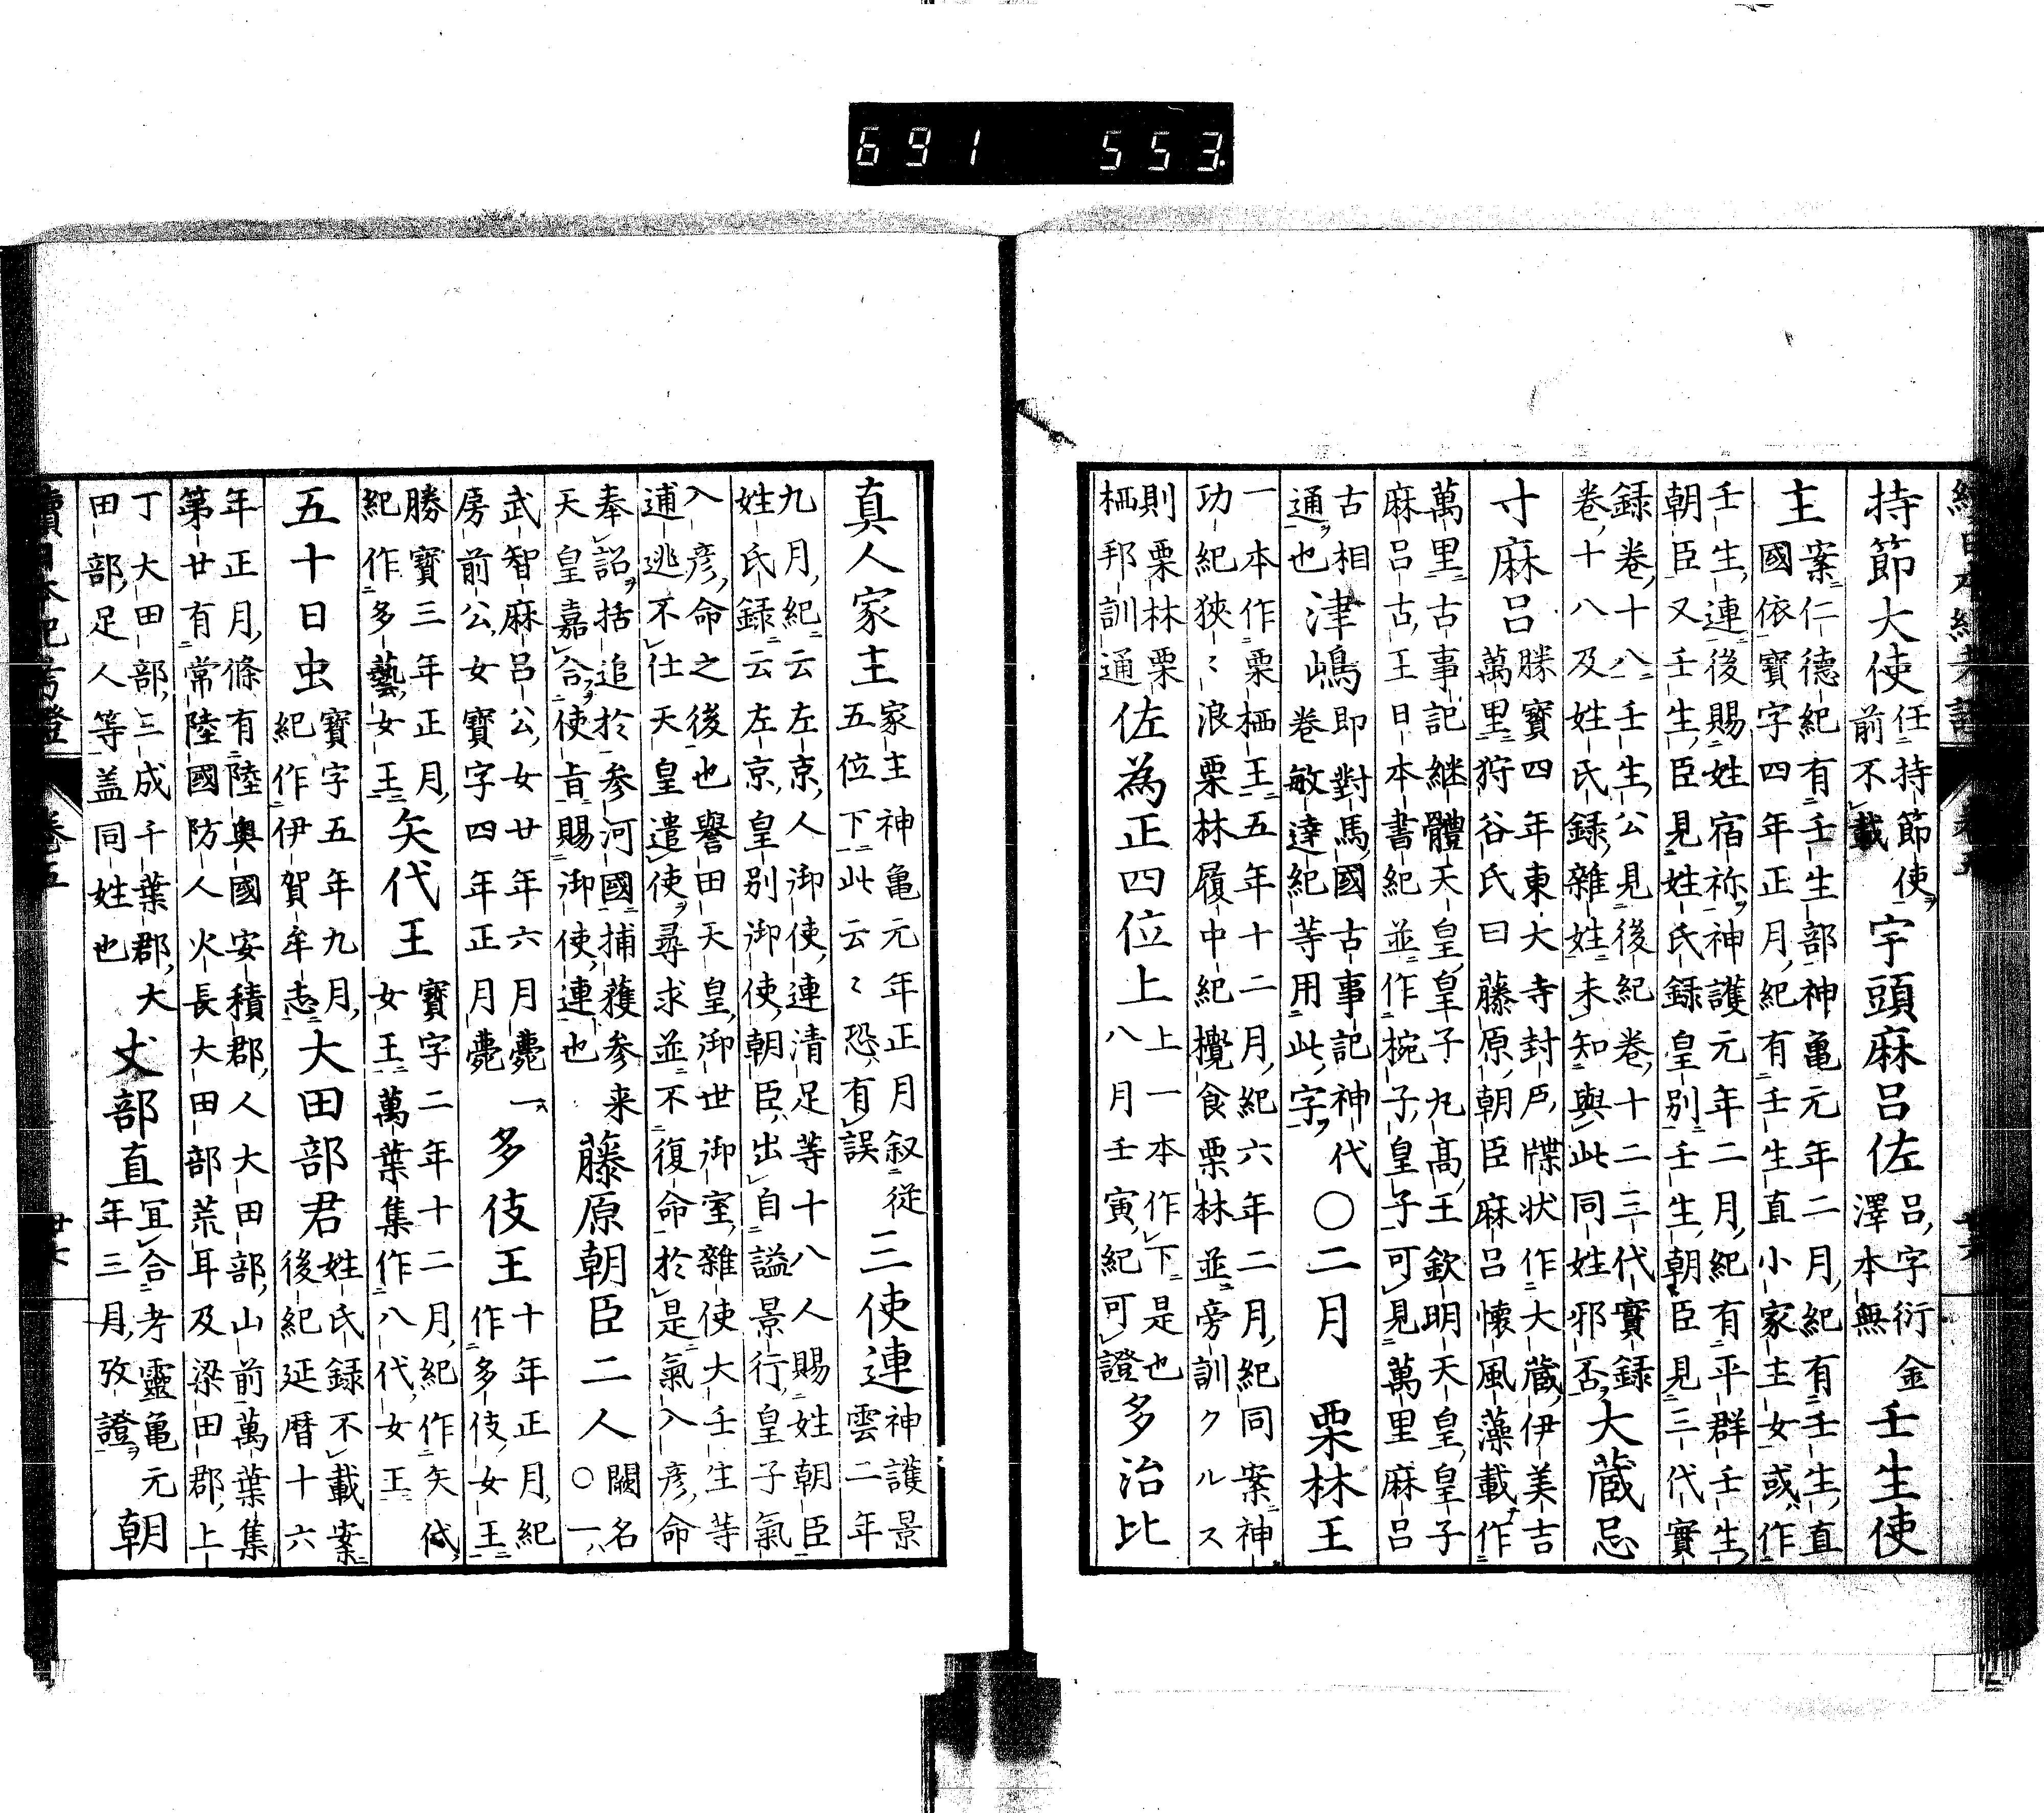 691 553
持節大使 任持節使 前不載 宇頭麻呂佐 呂字衍金 澤本無 壬生使
主 案仁德紀有壬生部神亀元年二月紀有壬生直
國依寶字四年正月紀有壬生直小家主女或作
壬生連後賜姓宿祢神護元年二月紀有平群壬生
朝臣又壬生臣見姓氏録皇別壬生朝臣見三代實
録卷十八壬生公見後紀卷十二三代實録
卷十八及姓氏録雜姓未知與此同姓邪否 大蔵忌
寸麻呂 勝寶四年東大寺封戸牒状作大蔵伊美吉
萬里狩谷氏曰藤原朝臣麻呂懐風藻載作
萬里古事記継體天皇皇子丸高王欽明天皇皇子
麻呂古王日本書紀並作椀子皇子可見萬里麻呂
古相
通也 津嶋 即對馬國古事記神代
卷敏達紀等用此字 〇二月 栗林王
一本作栗栖王五年十二月紀六年二月紀同案神
功紀狹〻浪栗林履中紀攪食栗林並旁訓クルス
則栗林栗
栖邦訓通 佐為正四位上 上一本作下是也
八月壬寅紀可證 多治比
真人家主 家主神亀元年正月叙從
五位下此云〻恐有誤 三使連 神護景
雲二年
九月紀云左京人御使連清足等十八人賜姓朝臣
姓氏録云左京皇別御使朝臣出自謚景行皇子氣
入彦命之後也譽田天皇御世御室雜使大壬生等
逋逃不仕天皇遣使尋求並不復命於是氣入彦命
奉詔括追於参河國捕獲参来
天皇嘉合使旨賜御使連也 藤原朝臣二人 闕名
〇一
武智麻呂公女廿年六月薨一
房前公女寶字四年正月薨 多伎王 十年正月紀
作多伎女王
勝寶三年正月
紀作多藝女王 矢代王 寶字二年十二月紀作矢代
女王萬葉集作八代女王
五十日虫 寶字五年九月
紀作伊賀牟志 大田部君 姓氏録不載案
後紀延暦十六
年正月條有陸奥國安積郡人大田部山前萬葉集
第廿有常陸國防人火長大田部荒耳及梁田郡上
丁大田部三成千葉郡大
田部足人等盖同姓也 丈部直 冝合考靈亀元
年三月攷證 朝